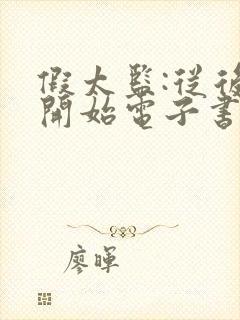 假太監:從後
開始電子書
廖暉